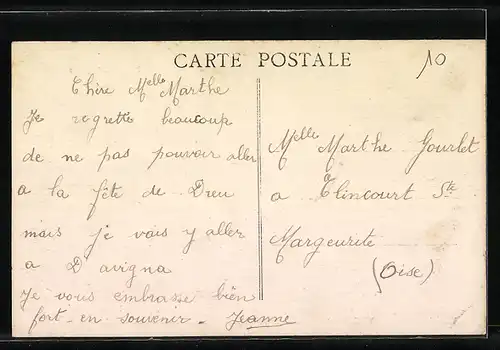 CARTE POSTALE
10
Chère Melle Marthe
Je regrette beaucoup
de ne pas pouvoir aller
a la fête de Dreu
mais je vais y aller
a D'avigna
Je vous embrasse bien
fort en souvenir - Jeanne
Melle Marthe Gourlet
a Elincourt Ste
Margeurite
(Oise)